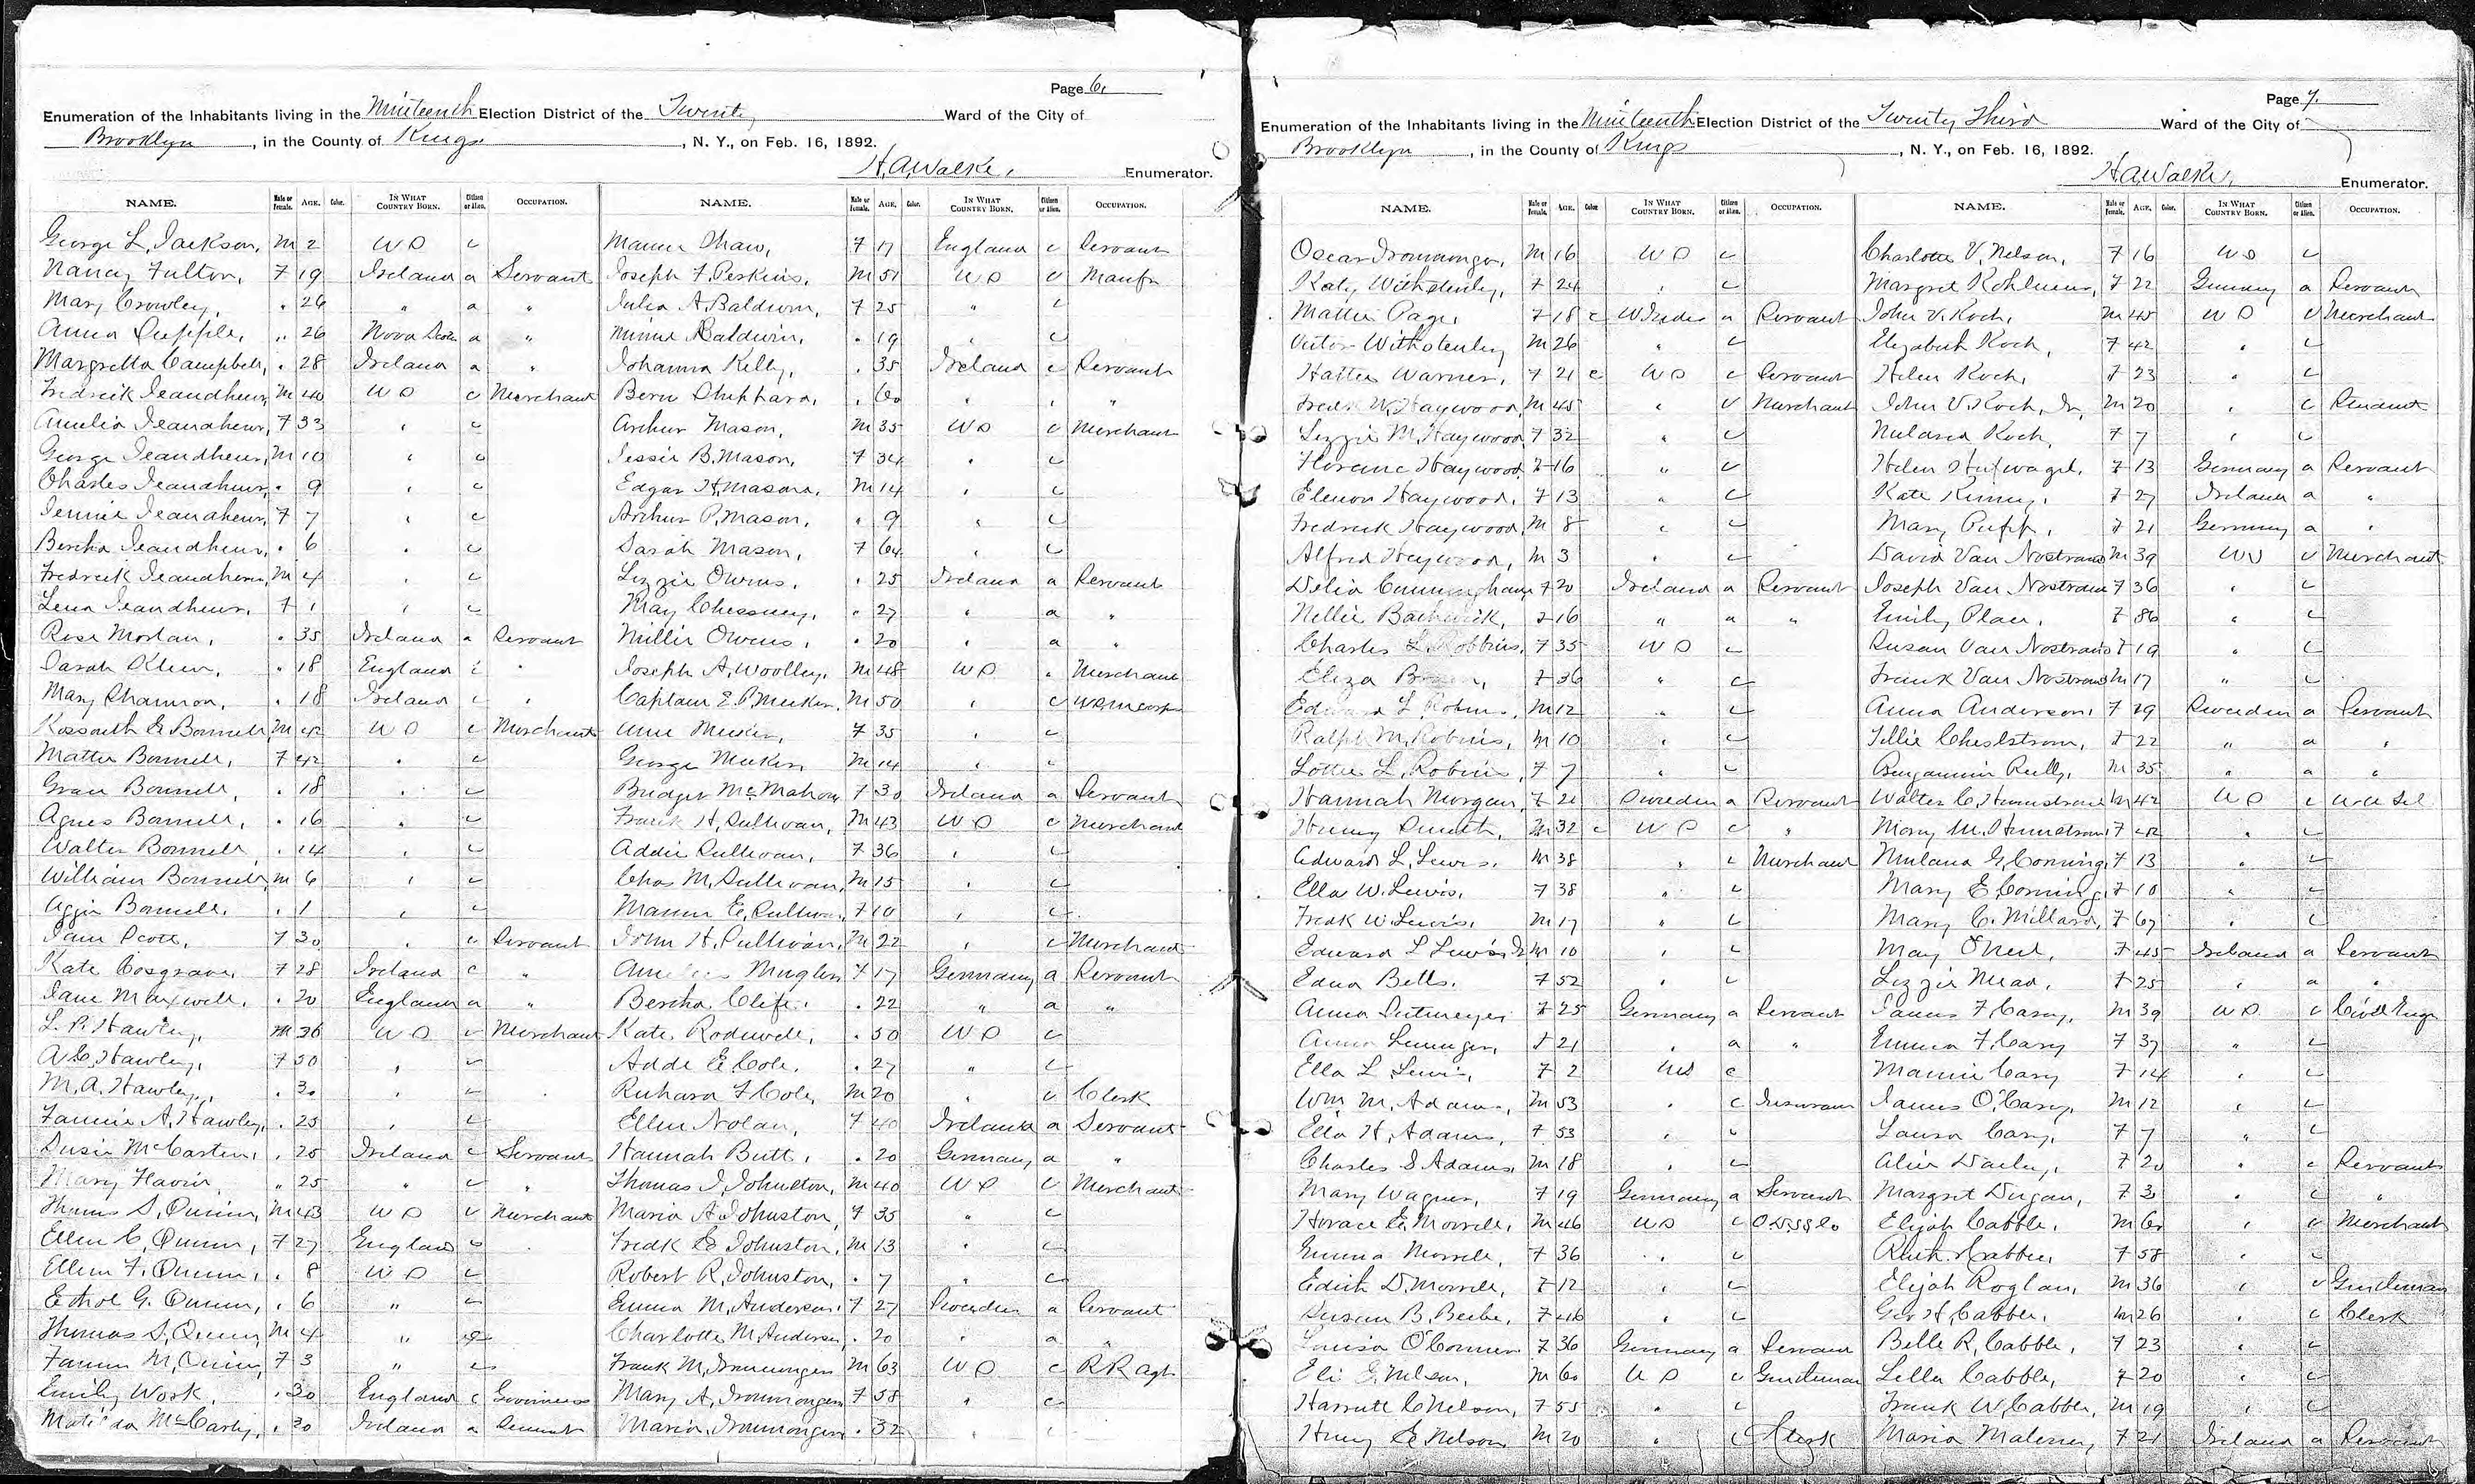 Page 6,
Enumeration of the Inhabitants living in the Nineteenth Election District of the Twenty Ward of the City of
Brooklyn, in the County of Kings, N. Y., on Feb. 16, 1892.
H.A. Walke, Enumerator.
NAME. Male or Female. AGE. Color. IN WHAT COUNTRY BORN. Citizen or Alien. OCCUPATION.
George L. Jackson, M 2 U S c
Nancy Fulton, F 19 Ireland a Servant
Mary Crowley, " 26 " a "
Anna Supple, " 26 Nova Scotia a "
Margretta Campbell, " 28 Ireland a "
Fredrick Jeandheur, M 40 U S c Merchant
Amelia Jeandheur, F 33 " c
George Jeandheur, M 10 " c
Charles Jeandheur, " 9 " c
Jennie Jeandheur, F 7 " c
Bertha Jeandheur, " 6 " c
Fredrick Jeandheur, M 4 " c
Lena Jeandheur, F 1 " c
Rose Morlan, " 35 Ireland a Servant
Sarah Klein, " 18 England c "
Mary Shannon, " 18 Ireland c "
Kossouth E Bonnell M 42 U S c Merchant
Mattie Bonnell, F 42 " c
Grace Bonnell, " 18 " c
Agnes Bonnell, " 16 " c
Walter Bonnell, " 14 " c
William Bonnell, M 6 " c
Aggie Bonnell, " 1 " c
Jane Scott, F 30 " c Servant
Kate Cosgrave, F 28 Ireland c "
Jane Maxwell, " 20 England a "
L. P. Hawley, M 36 U S c Merchant
A. C. Hawley, F 50 " c
M. A. Hawley, " 30 " c
Fannie A. Hawley, " 25 " c
Susie McCarten, " 25 Ireland c Servant
Mary Flavin, " 25 " c "
Thomas S. Quinn, M 43 U S c Merchant
Ellen C. Quinn, F 27 England c
Ellen F. Quinn, " 8 U S c
Ethel G. Quinn, " 6 " c
Thomas S. Quinn, M 4 " c
Fannie M. Quinn, F 3 " c
Emily Work, " 30 England c Governess
Matilda McCarty, " 30 Ireland a Servant
NAME. Male or Female. AGE. Color. IN WHAT COUNTRY BORN. Citizen or Alien. OCCUPATION.
Mamie Shaw, F 17 England c Servant
Joseph F. Perkins, M 51 U S c Manfr
Julia A. Baldwin, F 25 " c
Minnie Baldwin, " 19 " c
Johanna Kelly, " 35 Ireland c Servant
Shephard, " 60 " " "
Arthur Mason, M 35 U S c Merchant
Jessie B. Mason, F 34 " c
Edgar H. Mason, M 14 " c
Arthur P. Mason, " 9 " c
Sarah Mason, F 64 " c
Lizzie Owens, " 25 Ireland a Servant
May Chessney, " 27 " a "
Millie Owens, " 20 " a "
Joseph A. Woolley, M 48 U S " Merchant
Captain E. P. Meeker, M 50 " c
Meeker, F 35 " c
George Meeker, M 14 " c
Bridget McMahon F 30 Ireland a Servant
Frank H. Sullivan, M 43 U S c Merchant
Addie Sullivan, F 36 " c
Chas M. Sullivan, M 15 " c
Mamie E. Sullivan F 10 " c
John H. Sullivan, M 22 " c Merchant
Mugler F 17 Germany a Servant
Bertha Clife, " 22 " a "
Kate Rodwell, " 50 U S c
Adde E. Cole, " 27 " c
Richard F Cole, M 20 " c Clerk
Ellen Nolan, F 40 Ireland a Servant
Hannah Butt, " 20 Germany a "
Thomas J. Johnston, M 40 U S c Merchant
Maria A. Johnston, F 35 " c
Fredk E Johnston, M 13 " c
Robert R. Johnston, " 7 " c
Emma M. Anderson, F 27 Sweden a Servant
Charlotte M. Anderson, " 20 " a "
Frank M. Ironmonger M 63 U S c R R Agt
Mary A. Ironmonger F 58 " c
Maria Ironmonger " 32 " "
Page 7.
Enumeration of the Inhabitants living in the Nineteenth Election District of the Twenty Third Ward of the City of
Brooklyn, in the County of Kings, N. Y., on Feb. 16, 1892.
H.A. Walke, Enumerator.
NAME. Male or Female. AGE. Color. IN WHAT COUNTRY BORN. Citizen or Alien. OCCUPATION.
Oscar Ironmonger, M 16 U S c
Katy Witholenley, F 24 " c
Mattie Page, F 18 c W Indes a Servant
Victor Witholenley M 26 " c
Hattie Warner, F 21 c U S c Servant
Fredk W. Haywood, M 45 " c Merchant
Lizzie M. Haywood F 32 " c
Florence Haywood, F 16 " c
Elenor Haywood, F 13 " c
Fredrick Haywood, M 8 " c
Alfred Heywood, M 3 " c
Delia Cunningham F 20 Ireland a Servant
Nellie F 16 " a "
Charles L. Robbins, F 35 U S c
Eliza F 36 " c
Edward L. Robins, M 12 " c
Ralph M. Robins, M 10 " c
Lottie L. Robins, F 7 " c
Hannah Morgan, F 21 Sweden a Servant
Henry Smith, M 32 c U S c "
Edward L. Lewis, M 38 " c Merchant
Ella W. Lewis, F 38 " c
Fredk W. Lewis, M 17 " c
Edward L Lewis Jr M 10 " c
Edna Bells, F 52 " c
Anna Sutmeyer F 25 Germany a Servant
Anna Leninger, F 21 " a "
Ella L. Lewis, F 2 U S c
Wm M. Adams, M 53 " c Insurance
Ella H. Adams, F 53 " c
Charles S Adams, M 18 " c
Mary Wagner, F 19 Germany a Servant
Horace E. Morrell, M 46 U S c
Emma Morrell, F 36 " c
Edith D. Morrell, F 12 " c
Susan B. Beebe, F 46 " c
Louisa O'Conner F 36 Germany a Servant
Eli G. Nelson, M 60 U S c Gentleman
Harriett C Nelson, F 55 " c
Henry E Nelson M 20 " c Clerk
NAME. Male or Female. AGE. Color. IN WHAT COUNTRY BORN. Citizen or Alien. OCCUPATION.
Charlotte V. Nelson, F 16 U S c
Margret Kohlmens, F 22 Germany a Servant
John V. Koch, M 45 U S c Merchant
Elizabeth Koch, F 42 " c
Helen Koch, F 23 " c
John V. Koch, Jr, M 20 " c Student
Mildred Koch, F 7 " c
Helen Hufnagel, F 13 Germany a Servant
Kate Kinney, F 27 Ireland a "
Mary Pupp, F 21 Germany a "
David Van Nostrand M 39 U S c Merchant
Joseph Van Nostrand F 36 " c
Emily Place, F 86 " c
Susan Van Nostrand F 19 " c
Frank Van Nostrand M 17 " c
Anna Anderson, F 19 Sweden a Servant
Tillie Cheslstrom, F 22 " a "
Benjamin Reilly, M 35 " a "
Walter C. M 42 U S c
Mary M. F 42 " c
G. Corning, F 13 " c
Mary E. Corning, F 10 " c
Mary C. Millard, F 67 " c
May O'Neil, F 45 Ireland a Servant
Lizzie Mead, F 25 " a "
James F. Casey, M 39 U S c Civil Engr
Emma F. Casy F 37 " c
Mamie Casy F 14 " c
James O. Casy, M 12 " c
Laura Casy, F 7 " c
Alice Dailey, F 20 " c Servant
Margret Dugan, F 30 " c "
Elijah Cabble, M 60 " c Merchant
Ruth Cabble, F 58 " c
Elijah Roglan, M 36 " c Gentleman
Geo H. Cabble, M 26 " c Clerk
Belle R. Cabble, F 23 " c
Lella Cabble, F 20 " c
Frank W. Cabble, M 19 " c
Maria Maloney F 21 Ireland a Servant